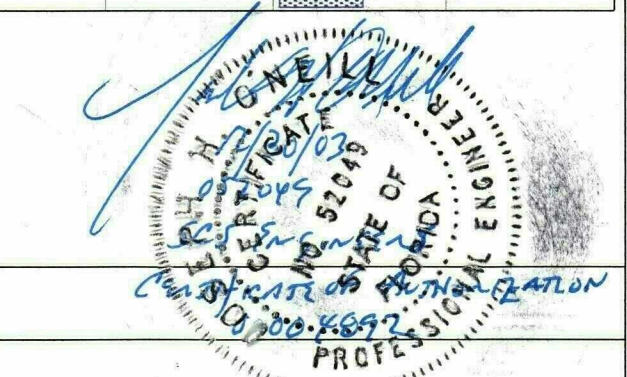 JOSEPH H. O'NEILL
CERTIFICATE
NO. 52049
STATE OF
FLORIDA
PROFESSIONAL ENGINEER
052049
SCS ENGINEERS
CERTIFICATE OF AUTHORIZATION
00004892